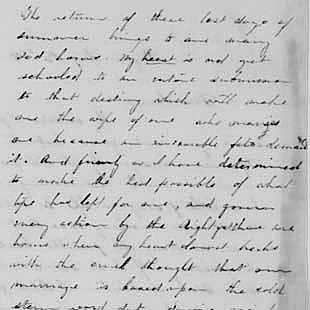 The return of these last days of
summer brings to me many
sad hours. My heart is not yet
schooled to an entire submission
to that destiny which will make
me the wife of one who marries
me because an inexorable fate demands
it. And firmly as I have determined
to make the best possible of what
life has left for me, and govern
every action by the right, there are
hours when my heart almost breaks
with the cruel thought that our
marriage is based upon the cold
stern word duty